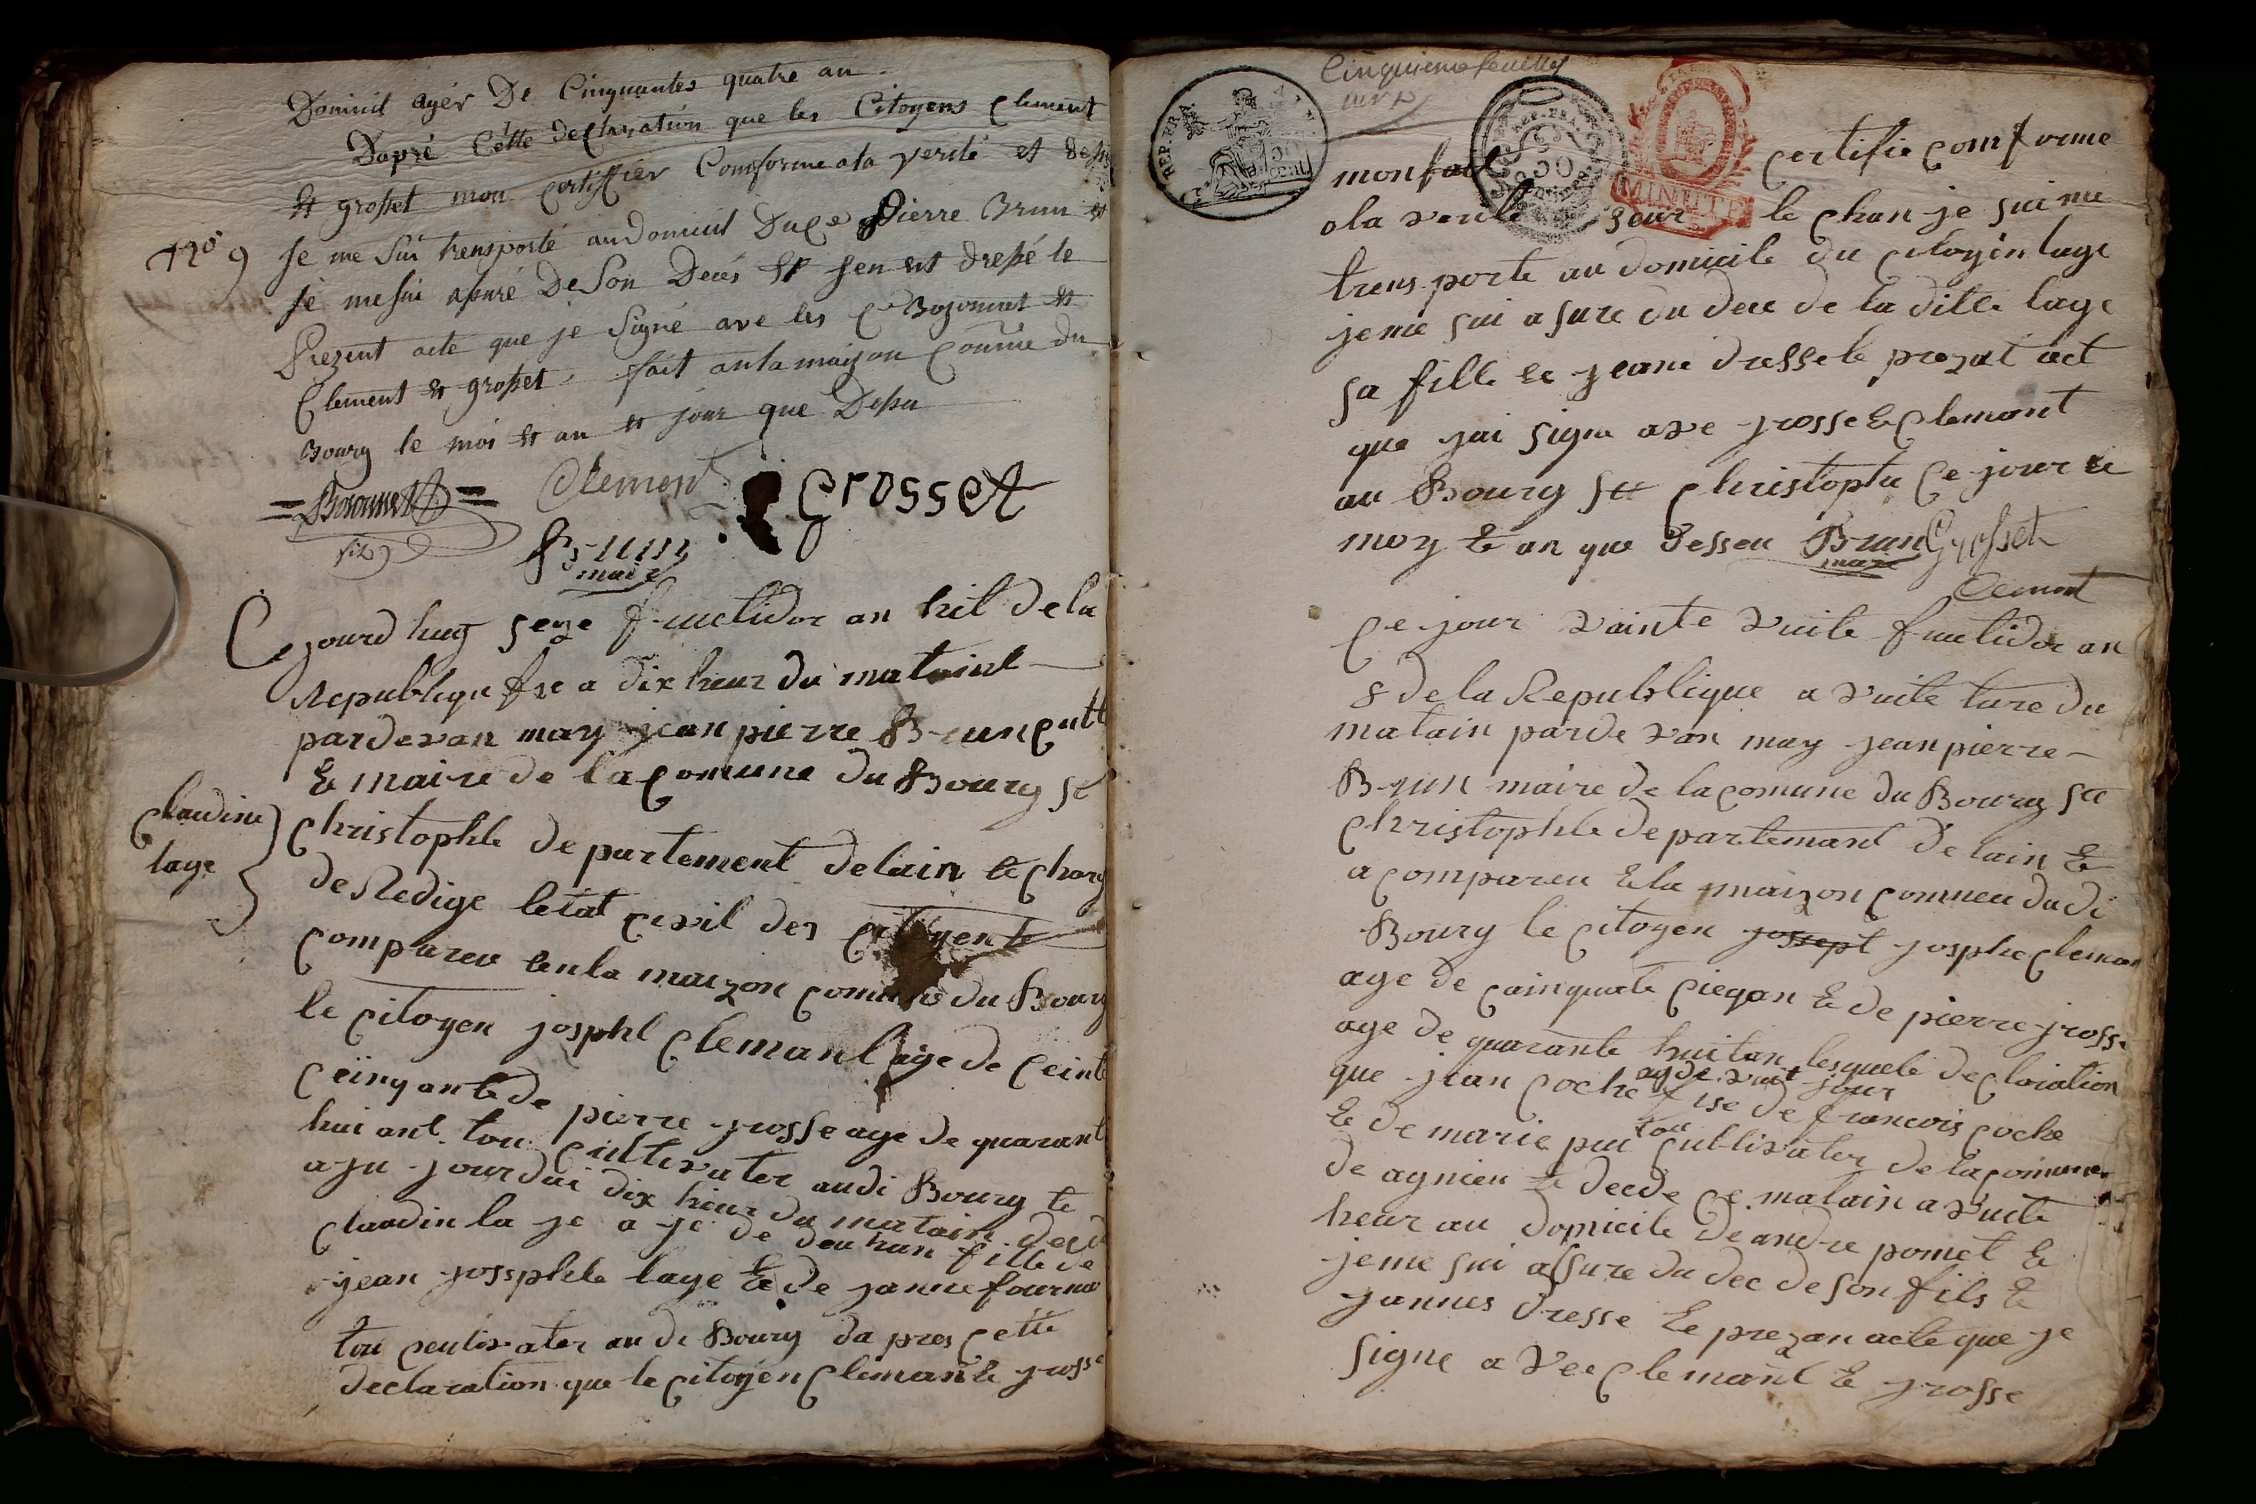 Domicil agér De Cinquantes quatre an
Dapré Cette declaration que les Citoyens Clement
et grosset mon certiffier Comforme ala verité et
No 9
Je me Sui trensporté audomicil Duce Pierre Brun et
Jé mesui apuré De Son Decés et Jen est dressé le
Present acte que je Signé ave les Cen Bozonnet et
Clement et grosset fait anla maizon Comune du
Bourg le moi et an et jour que Desu
Clement
grosset
Brun
maire
Cejourd huy seze fructidor an huit de la
Republique fse a dix heur du mataint
pardevan moy jean pierre Brun
et maire de la comune du Bourg st
claudine
laye
christophle departement delain et charg
de Redige letat cevil des citoyent
compareu enla maizon comune du Bourg
le citoyen josphl clemant age de ceint
ceinqante de pierre grosse age de quarant
hui ant tou cultivater audi Bourg et
aju jourdui dix heur du matain
claudin la je a je de deu han fille de
jean josphle laye et de janne
tou ceutivater au di Bourg da pres cette
declaration que le citoyen clemant et grosse
Cinquieme feuillet
REP. FRA.
50
cent
REP. FRA.
50
MINUTE
monfait certifie comforme
ala verite seur le chan je sui me
trens porte au domicile du citoyin laye
jeme sui asure du dece de la dite laye
sa fille et jeane dresse le prezat act
que jai signe ave grosse et clemant
au Bourg st christophe ce jour et
moy et an que desseu Brun Grosset
maire
Clement
ce jour vainte vuite fructidor an
8 de la Republique a vuite ture du
matain parde van moy jean pierre
Brun maire de la comune du Bourg st
christophle departemant delain et
a compareu ela maizon comneu dudi
Bourg le citoyen jossept josphe cleman
age de cainquate cieqan et de pierre grosse
age de quarante huitan lesquele declaration
que jean coche agde vuit jour
fise de francois coche
et de marie pui tou cultivater de la comune
de agnieu et decde ce matain a vuite
heur au domicile de andre pomet et
jeme sui assure du dec de son fils et
jannes dresse le prezan acte que je
signe a vec clemant et grosse